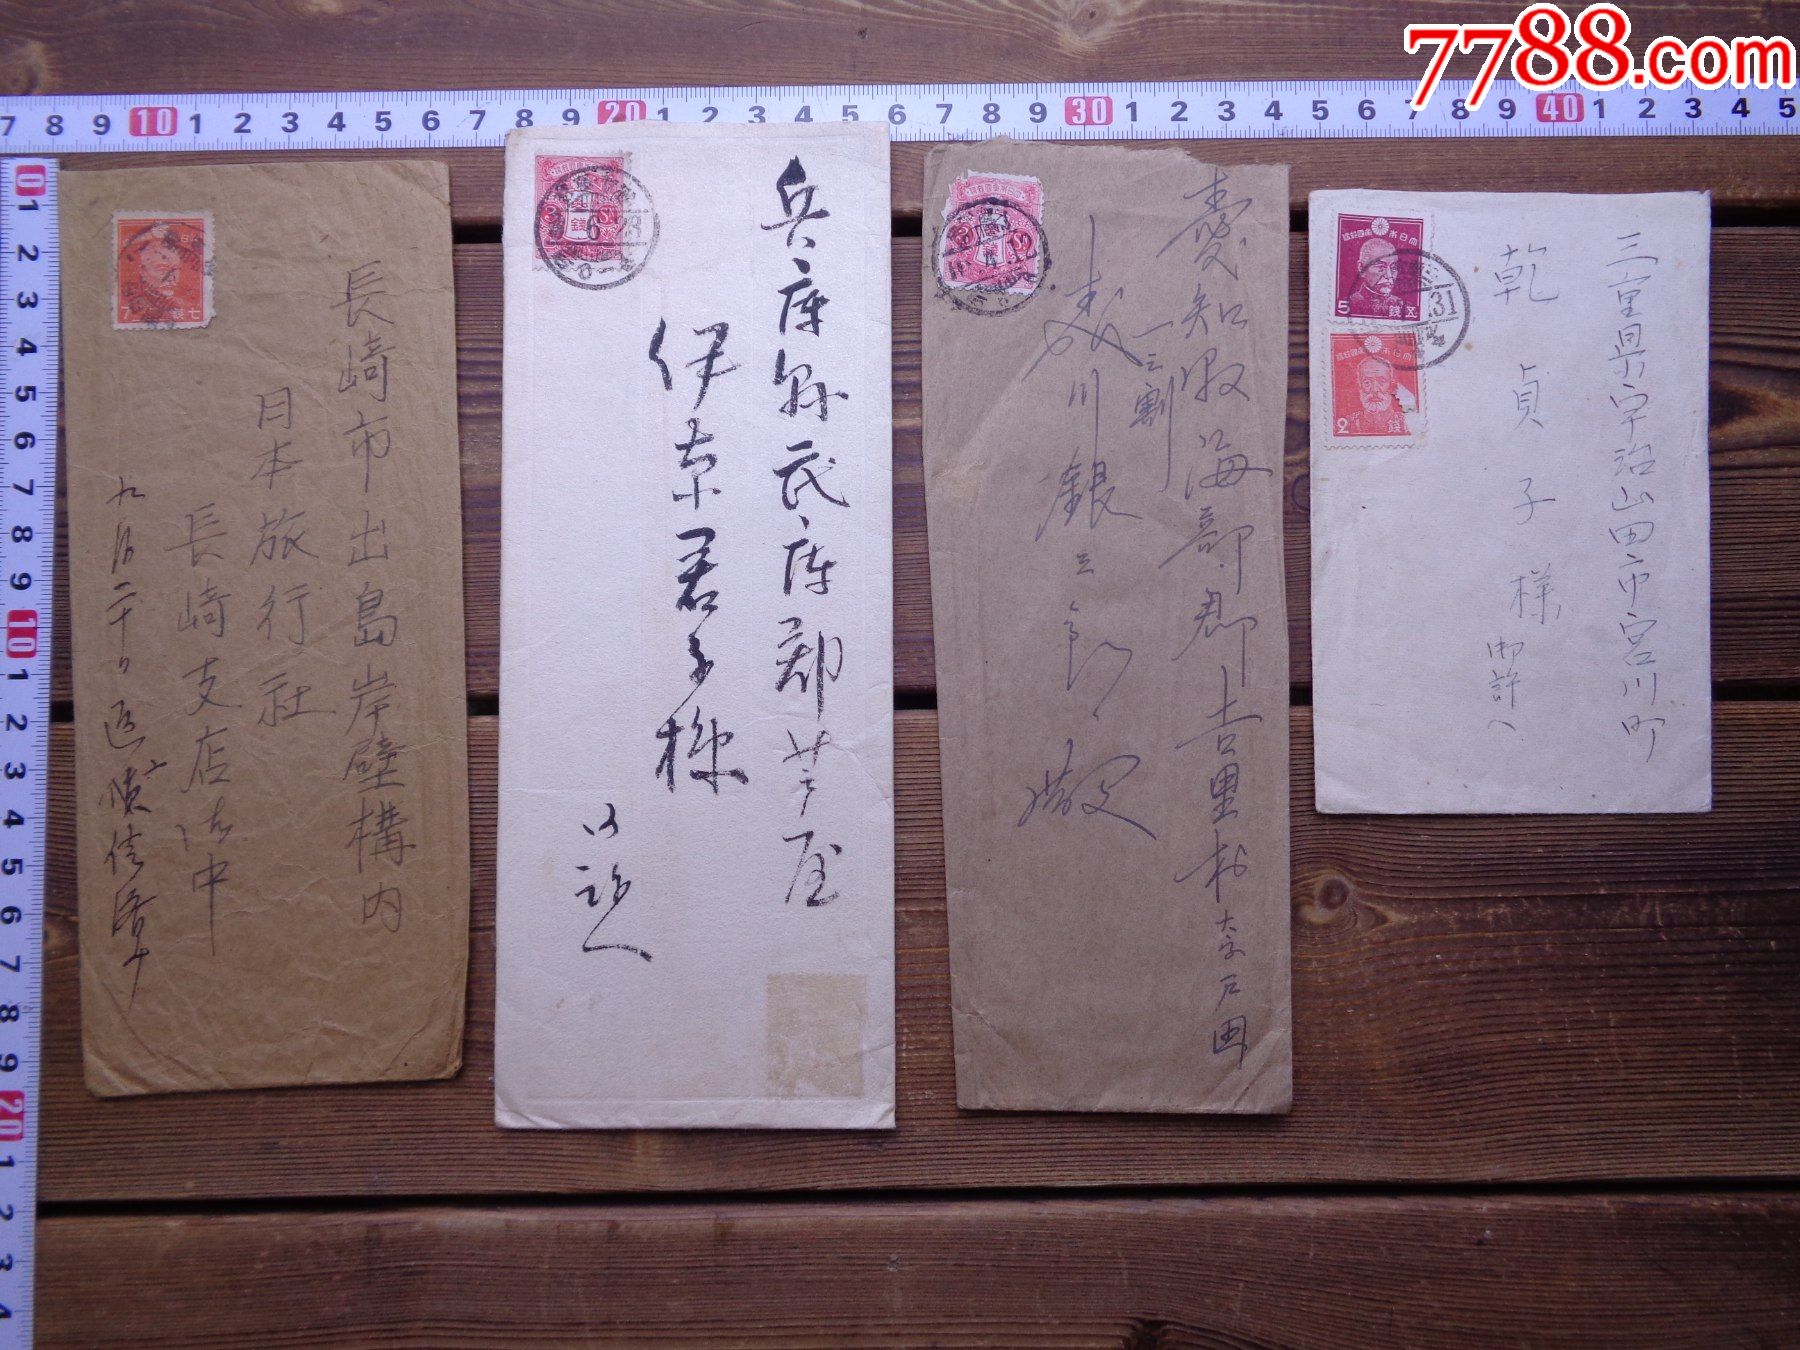 7788.com
7 8 9 10 1 2 3 4 5 6 7 8 9 20 1 2 3 4 5 6 7 8 9 30 1 2 3 4 5 6 7 8 9 40 1 2 3 4 5
0 1 2 3 4 5 6 7 8 9 10 1 2 3 4 5 6 7 8 9 20 1 2 3 4
長崎市出島岸壁構内
日本旅行社
長崎支店御中
九月二十日返
7 銭七
兵庫縣武庫郡芦屋
伊東君子様
6 23
銭
愛知縣海部郡吉里村大字戸田
銀三郎殿
12
三重県宇治山田市宮川町
乾貞子様
御許へ
大日本帝国郵便
5 銭五
31
2 銭